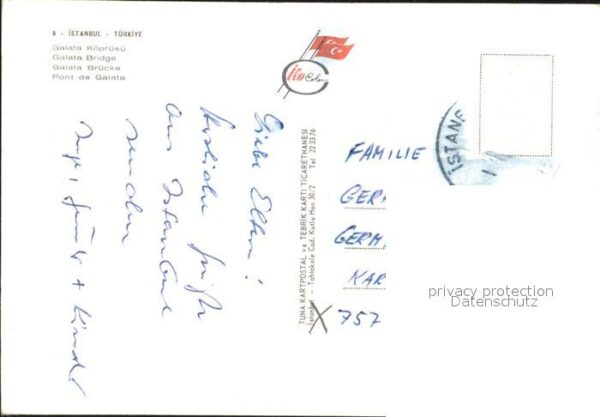 8 - İSTANBUL - TÜRKİYE
Galata Köprüsü
Galata Bridge
Galata Brücke
Pont de Galata
Color
TUNA KARTPOSTAL ve TEBRİK KARTI TİCARETHANESİ
İstanbul - Tahtakale Cad. Kutlu Han 30/2 Tel 223376
Liebe Eltern!
Herzliche Grüße
aus Istanbul
senden
+ Kinder
FAMILIE
GER
GERM
KAR
757
İSTANB
privacy protection
Datenschutz